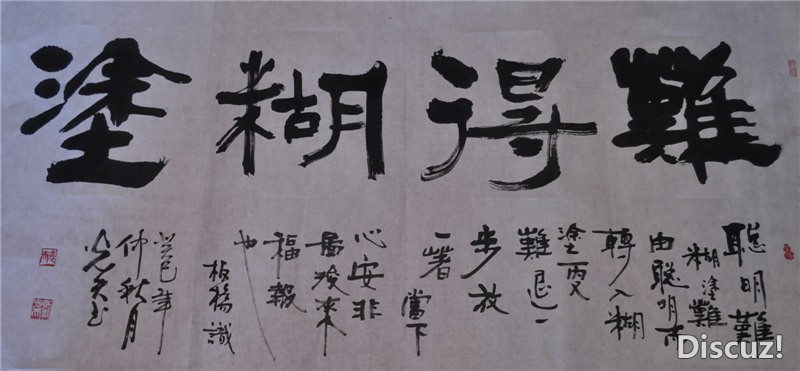 難得糊塗
聰明難
糊塗難
由聰明而
轉入糊
塗更
難退一
步放
一著
當下
心安非
圖後來
福報
也
板橋識
癸巳年
仲秋月
Discuz!